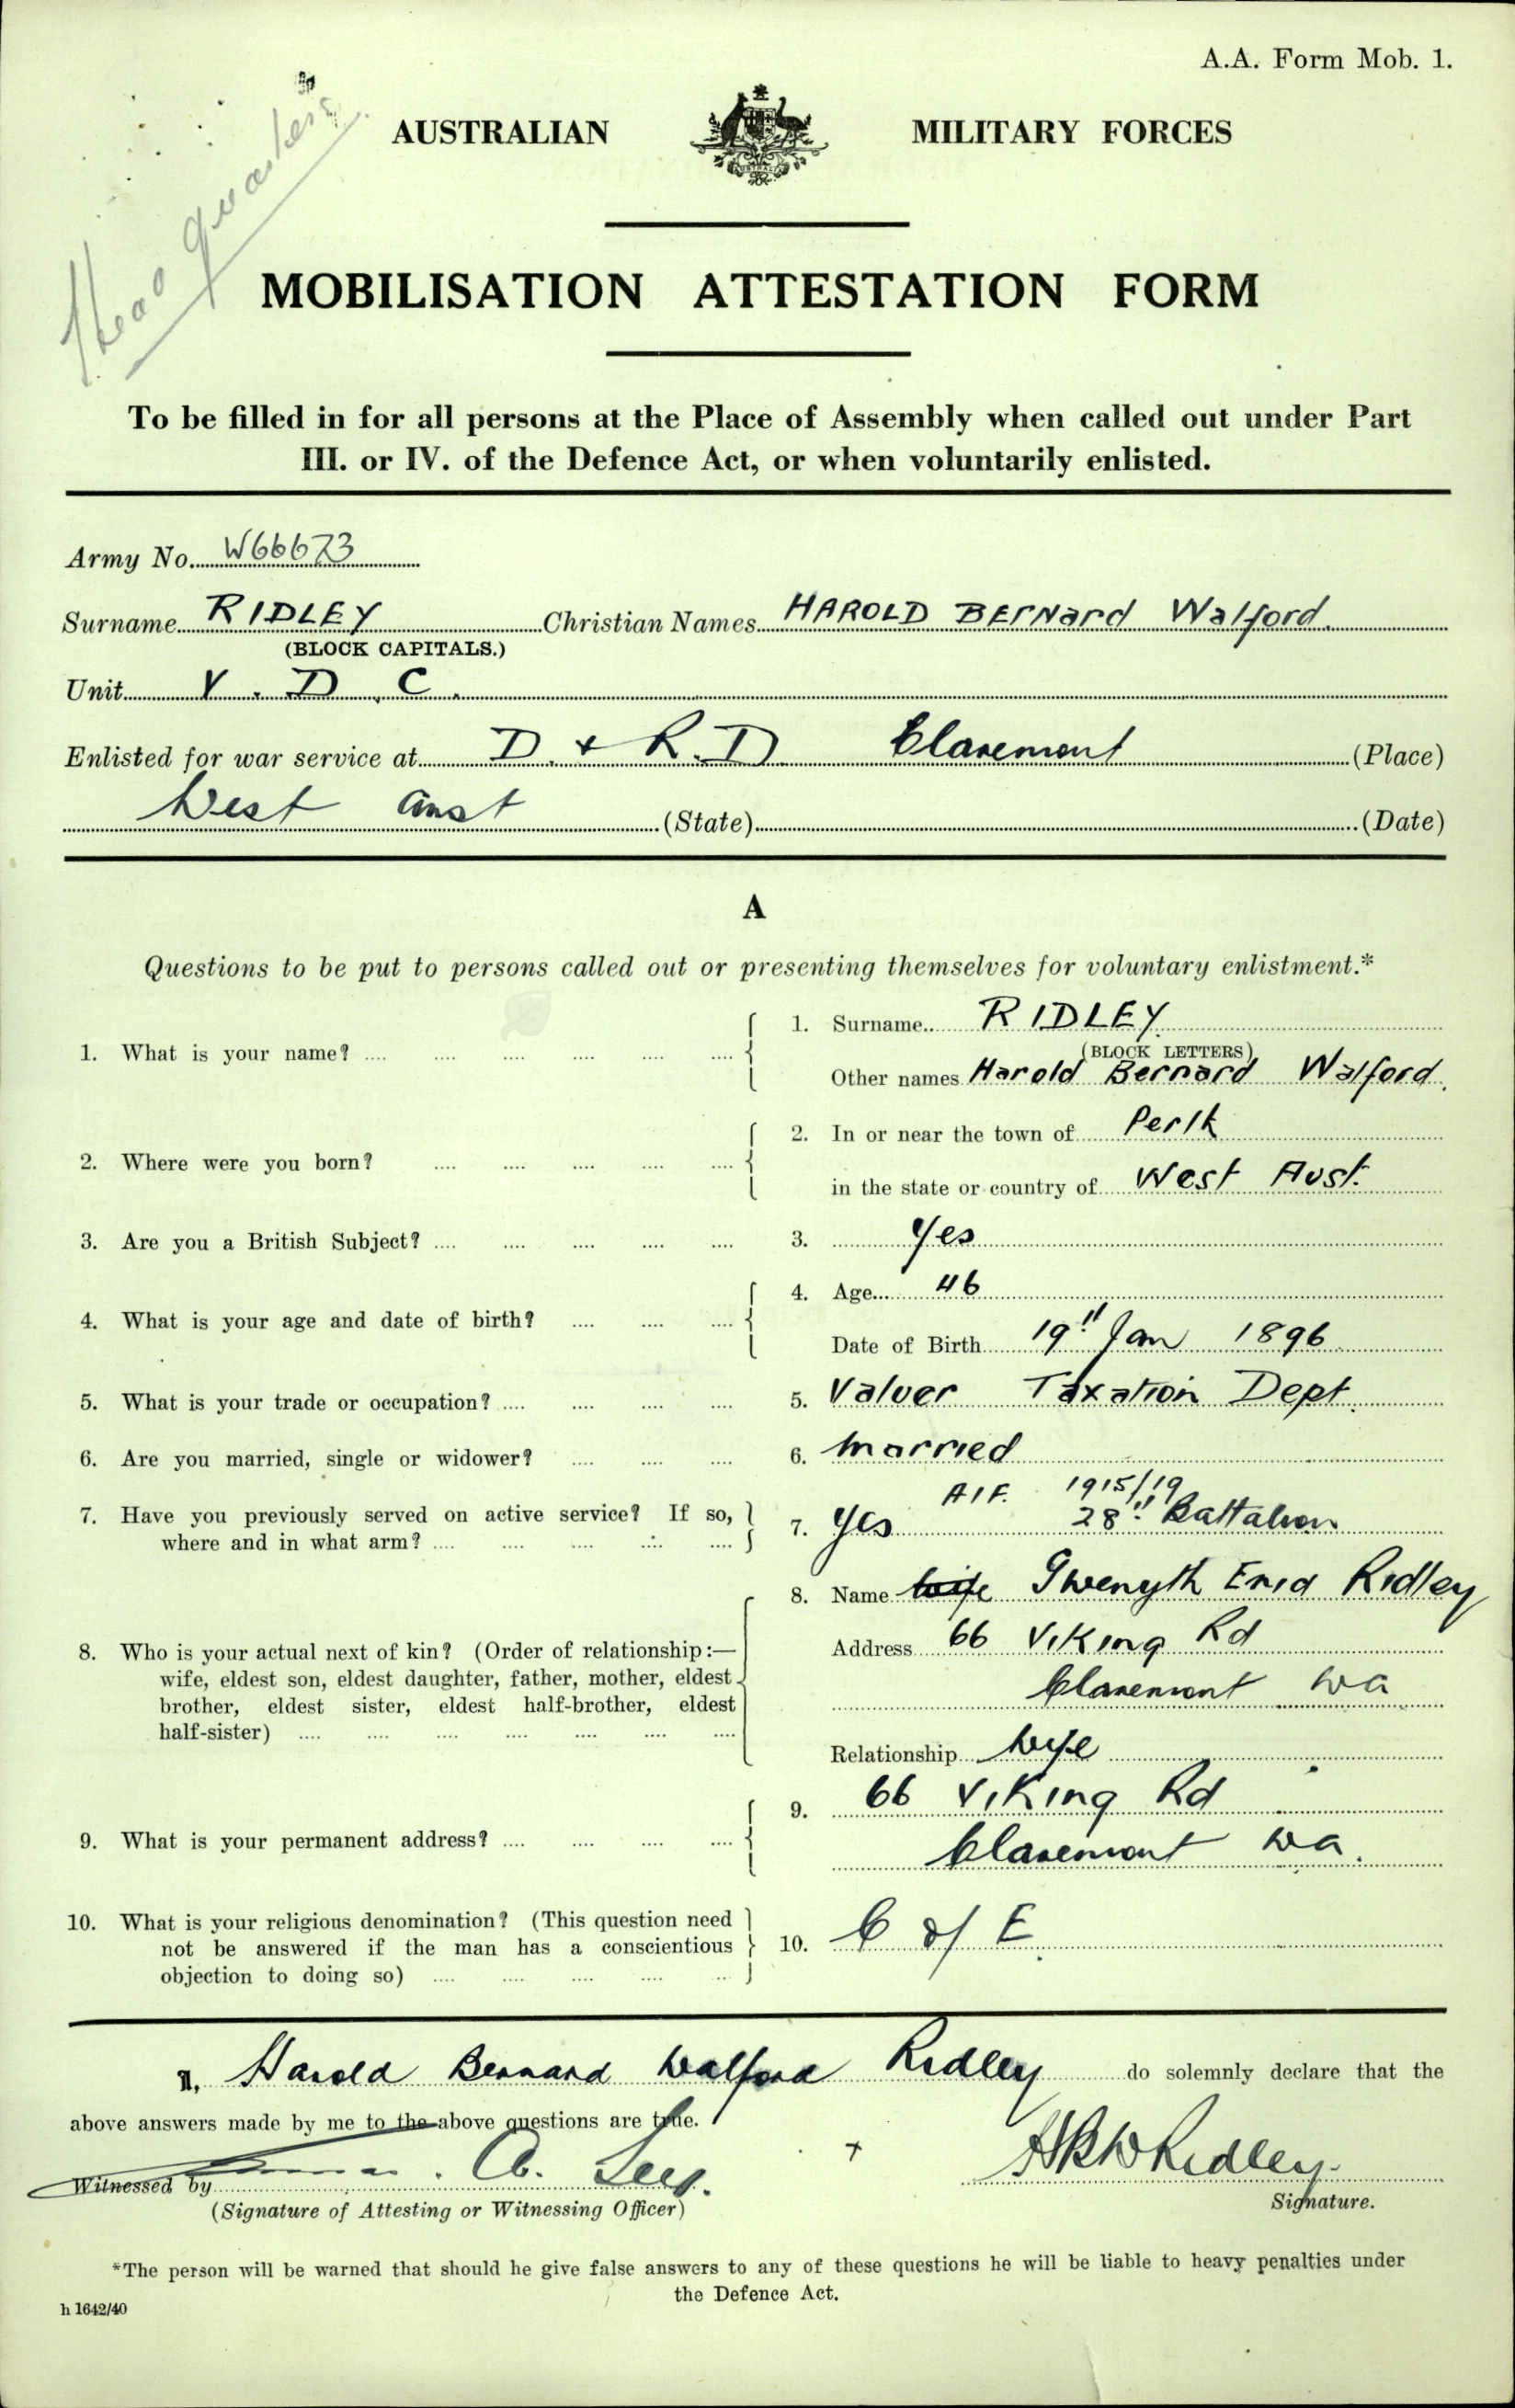 A.A. Form Mob. 1.
Head quarters
AUSTRALIAN MILITARY FORCES
MOBILISATION ATTESTATION FORM
To be filled in for all persons at the Place of Assembly when called out under Part
III. or IV. of the Defence Act, or when voluntarily enlisted.
Army No. W66673
Surname RIDLEY Christian Names HAROLD BERNard Walford
(BLOCK CAPITALS.)
Unit V. D. C.
Enlisted for war service at D & R. D Claremont (Place)
West Aust (State) (Date)
A
Questions to be put to persons called out or presenting themselves for voluntary enlistment.*
1. What is your name? 1. Surname RIDLEY
(BLOCK LETTERS)
Other names Harold Bernard Walford.
2. Where were you born? 2. In or near the town of Perth
in the state or country of West Aust.
3. Are you a British Subject? 3. Yes
4. What is your age and date of birth? 4. Age 46
Date of Birth 19th Jan 1896
5. What is your trade or occupation? 5. Valuer Taxation Dept.
6. Are you married, single or widower? 6. Married
7. Have you previously served on active service? If so,
where and in what arm? 7. Yes AIF. 1915/19
28th Battalion
8. Who is your actual next of kin? (Order of relationship:—
wife, eldest son, eldest daughter, father, mother, eldest
brother, eldest sister, eldest half-brother, eldest
half-sister)
8. Name wife Gwenyth Enid Ridley
Address 66 Viking Rd
Claremont WA
Relationship Wife
9. What is your permanent address? 9. 66 Viking Rd
Claremont WA.
10. What is your religious denomination? (This question need
not be answered if the man has a conscientious
objection to doing so)
10. C of E.
I, Harold Bernard Walford Ridley do solemnly declare that the
above answers made by me to the above questions are true.
Witnessed by
HBW Ridley.
(Signature of Attesting or Witnessing Officer) Signature.
*The person will be warned that should he give false answers to any of these questions he will be liable to heavy penalties under
the Defence Act.
h 1642/40